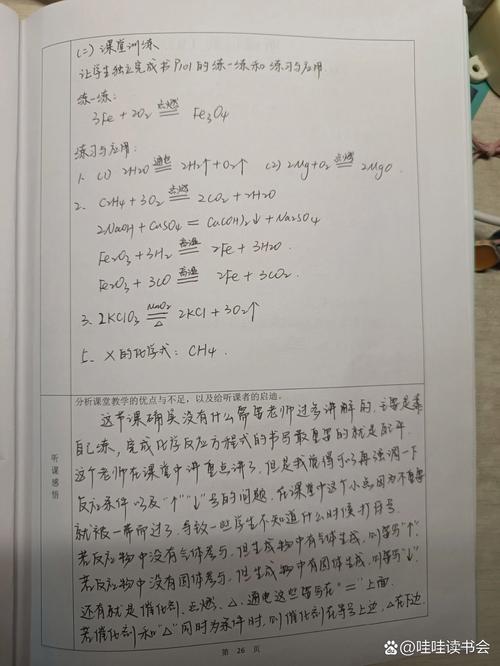 (二) 课堂训练
让学生独立完成书P101的练一练和练习与应用.
练一练:
3Fe + 2O₂ 点燃═ Fe₃O₄
练习与应用:
1. (1) 2H₂O 通电═ 2H₂↑+O₂↑ (2) 2Mg+O₂ 点燃═ 2MgO
2. C₂H₄ + 3O₂ 点燃═ 2CO₂ + 2H₂O
2NaOH + CuSO₄ = Cu(OH)₂↓ + Na₂SO₄
Fe₂O₃ + 3H₂ 高温═ 2Fe + 3H₂O.
Fe₂O₃ + 3CO 高温═ 2Fe + 3CO₂.
3. 2KClO₃ MnO₂═△ 2KCl + 3O₂↑
5. X的化学式: CH₄.
听课感悟
分析课堂教学的优点与不足,以及给听课者的启迪。
这节课确实没有什么需要老师过多讲解的.主要是靠
自己练,完成化学反应方程式的书写最重要的就是配平
这个老师在课堂中讲重点讲了.但是我觉得可以再强调一下
反应条件以及"↑""↓"号的问题.在课堂中这个小点因为不重要
就被一带而过了.导致一些学生不知道什么时候打符号.
若反应物中没有气体参与,但生成物中有气体生成,则写"↑".
若反应物中没有固体参与,但生成物中有固体生成,则写"↓".
还有就是催化剂、点燃、△、通电这些写在"="上面.
若催化剂和"△"同时为条件时,则催化剂在等号上边,△在下边.
第 26 页
@哇哇读书会